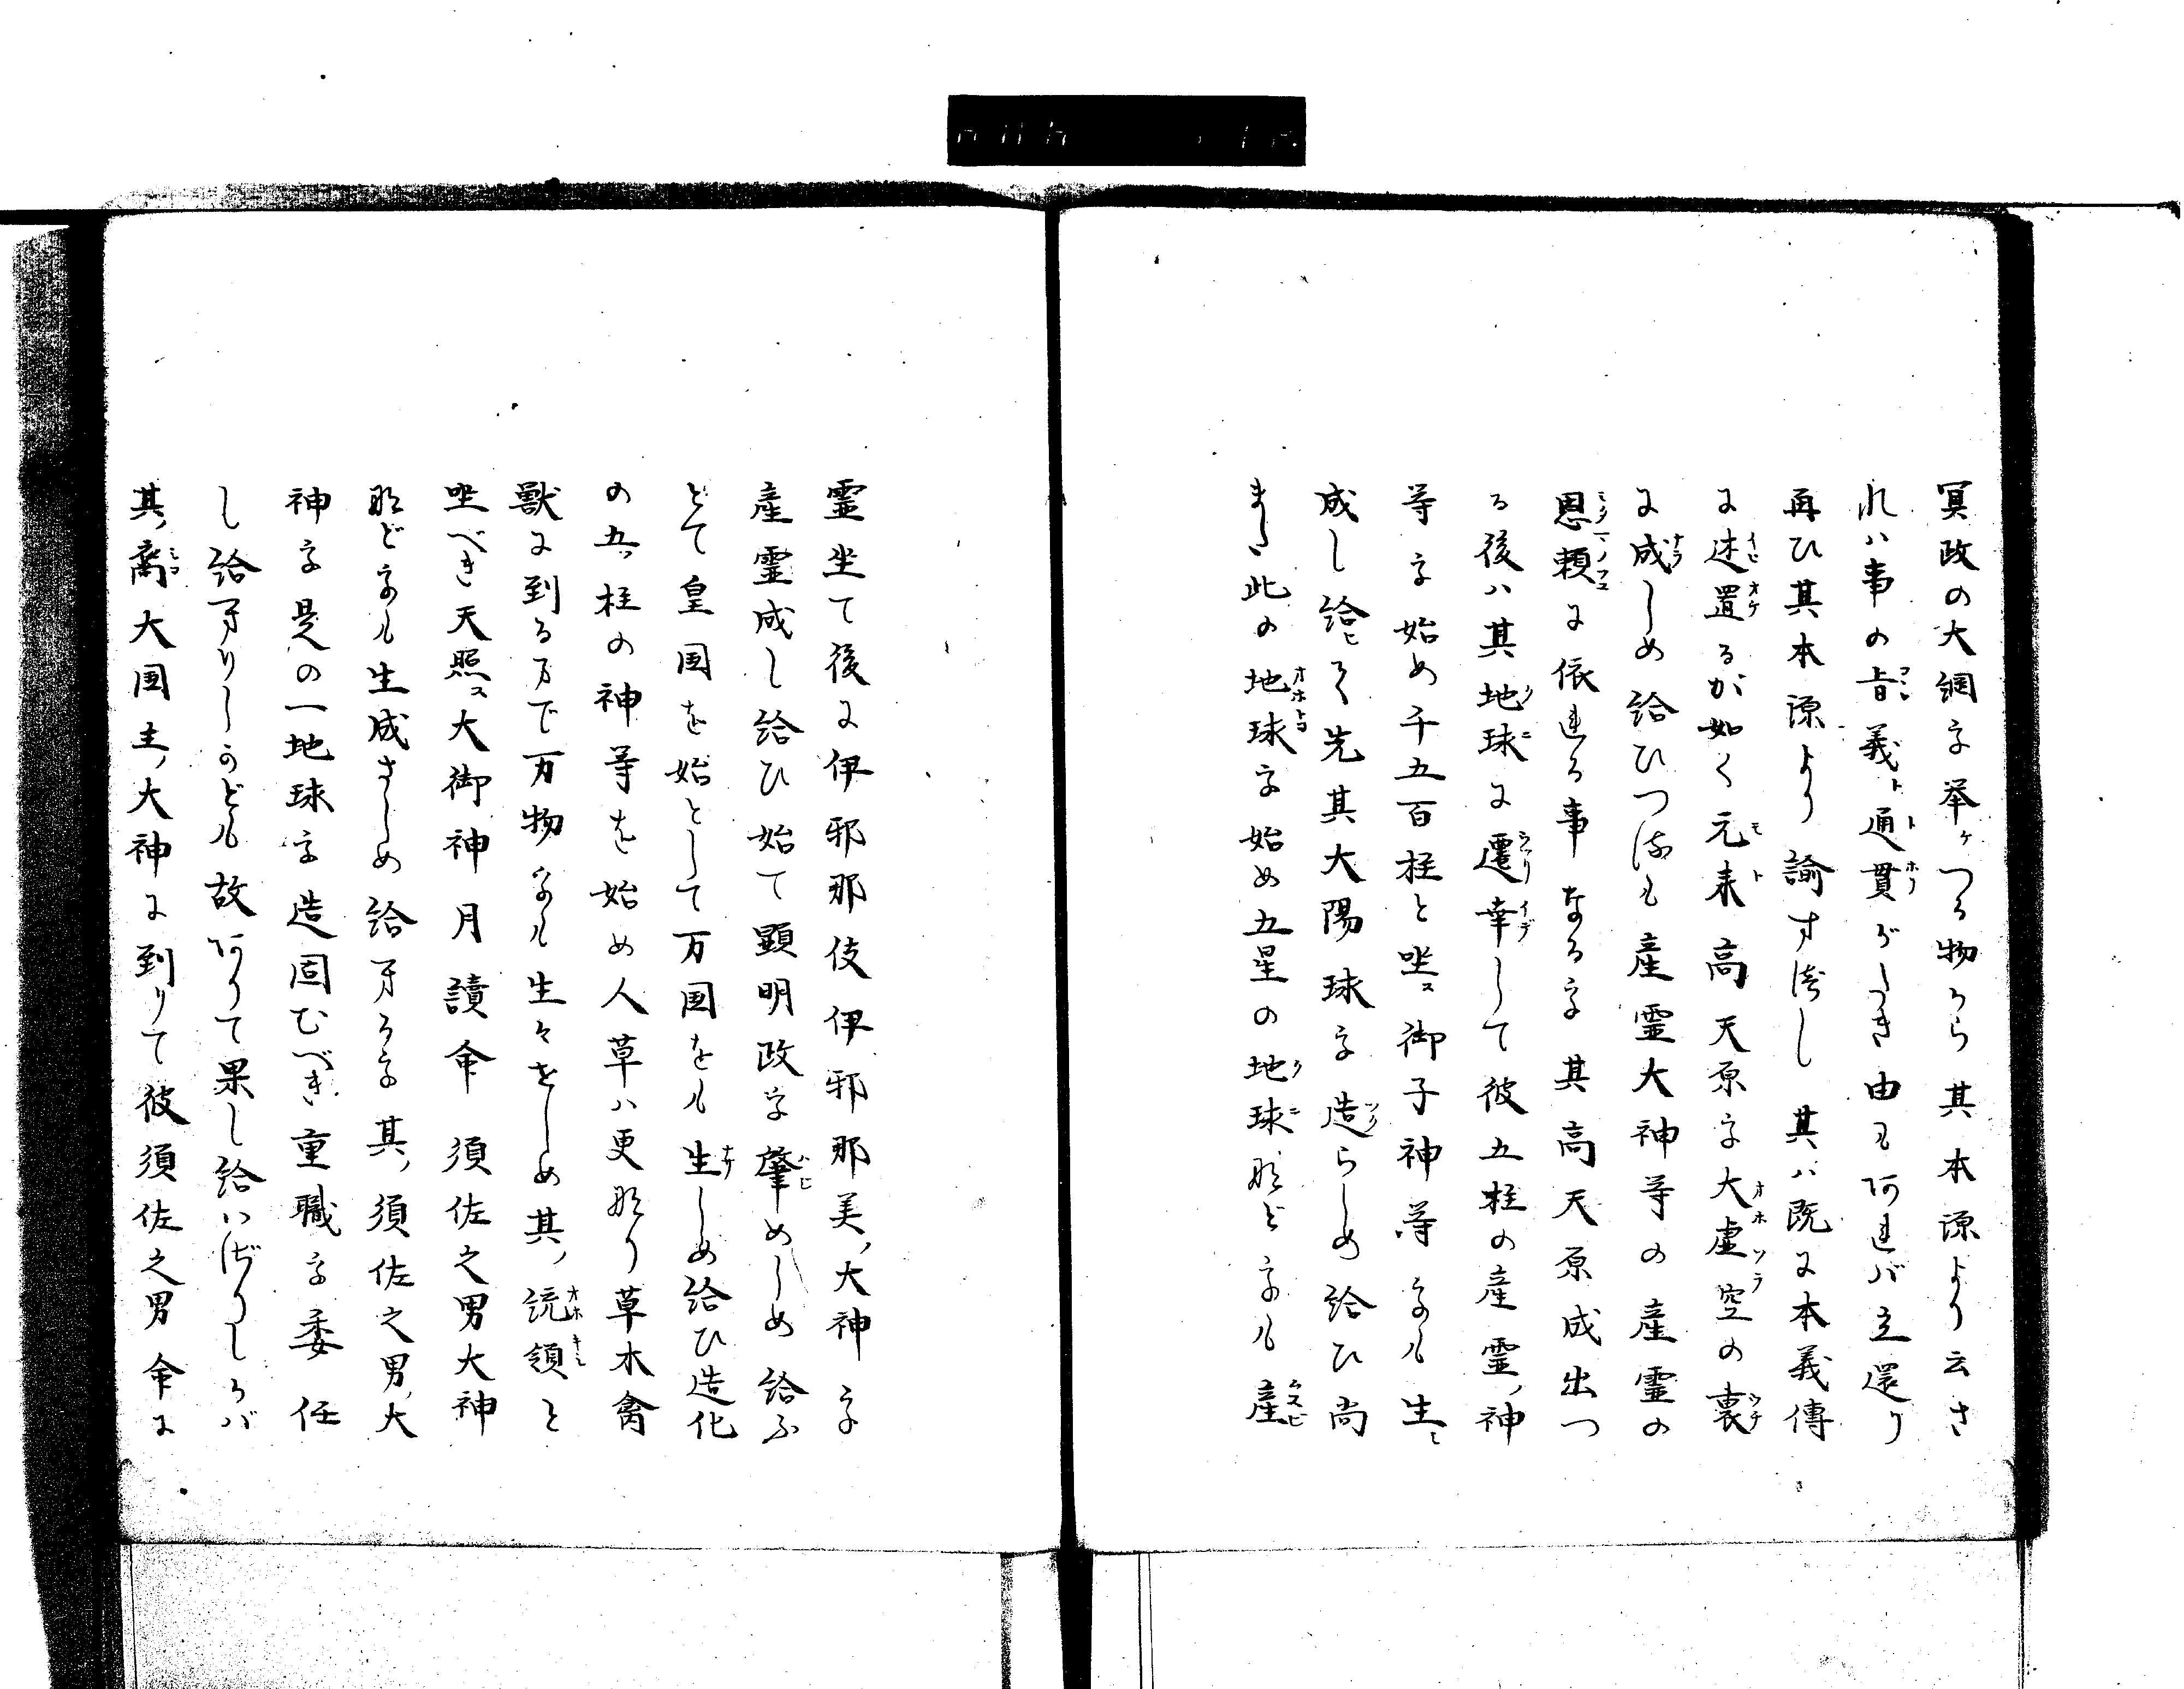 冥政の大綱を挙ケつる物から其本源より云さ
れハ事の旨義ト通貫がたき由も阿れバ立還り
再ひ其本源より諭す後し其ハ既に本義傳
に述置るが如く元来高天原を大虚空の裏
に成しめ給ひつるも産霊大神等の産霊の
恩頼に依れる事なるを其高天原成出つ
る後ハ其地球に遷幸して彼五柱の産霊ノ神
等を始め千五百柱と坐ス御子神等をも生ミ
成し給ヒて先其大陽球を造らしめ給ひ尚
また此の地球を始め五星の地球那どをも産
霊坐て後に伊邪那伎伊邪那美ノ大神を
産霊成し給ひ始て顕明政を肇めしめ給ふ
とて皇国を始として万国をも生しめ給ひ造化
の五ツ柱の神等を始め人草ハ更那り草木禽
獣に到るまで万物をも生々をしめ其ノ統領と
坐べき天照ス大御神月讀命須佐之男大神
那どをも生成さしめ給するを其ノ須佐之男ノ大
神を是の一地球を造固むべき重職を委任
し給すりしかども故阿りて果し給ハざりしかバ
其ノ裔大国主ノ大神に到りて彼須佐之男命に